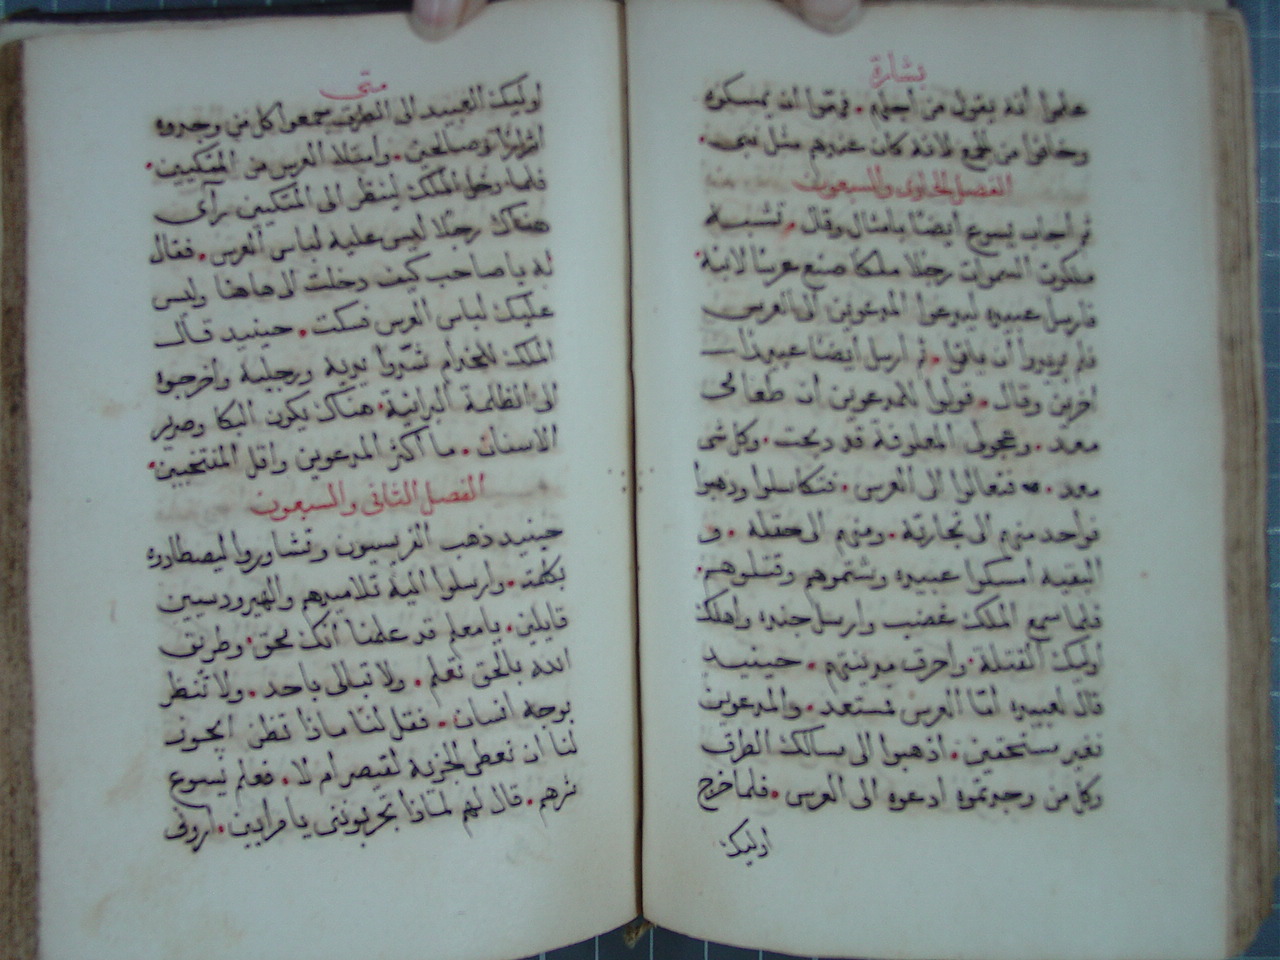 بشارة
علموا أنه يقول من أجلهم . فهموا ان يمسكوه
وخافوا من الجمع لانه كان عندهم مثل نبي .
الفصل الحاوى والسبعون
ثم أجاب يسوع أيضًا بامثال وقال . تشبه
ملكوت السموات رجلا ملكا صنع عرسًا لابنه .
فارسل عبيده ليدعوا المدعوين الى العرس
فلم يريدوا أن ياتوا . ثم أرسل ايضا عبيدا
اخرين وقال . قولوا للمدعوين ان طعامى
معد . وعجولى المعلوفة قد دبحت . وكل شى
معد . فتعالوا الى العرس . فتكاسلوا ودهبوا
فواحد منهم الى تجارته . ومنهم الى حقله . و
البقيه امسكوا عبيده وشتموهم وقتلوهم .
فلما سمع الملك غضب وارسل جنده واهلك
أوليك القتلة . واحرق مدينتهم . حينيد
قال لعبيده امّا العرس مستعد . والمدعوين
فغير مستحقين . اذهبوا الى مسالك الطرق
وكل من وجدتموه ادعوه الى العرس . فلما خرج
اوليك
متى
اوليك العبيد الى الطرق جمعوا كل من وجدوه
اشرارًا وصالحين . وامتلا العرس من المتكيين .
فلما دخل الملك لينظر الى المتكيين رآى
هناك رجلا ليس عليه لباس العرس . فقال
له يا صاحب كيف دخلت الى هاهنا وليس
عليك لباس العرس فسكت . حينيد قال
الملك للخدام شدّوا يديه ورجليه وأخرجوه
الى الظلمة البرانية . هناك يكون البكا وصرير
الاسنان . ما أكثر المدعوين واقل المنتخبين .
الفصل التانى والسبعون
حينيد ذهب الفريسيون وتشاوروا ليصطادوه
بكلمة . وارسلوا اليه تلاميدهم والهيرودسيين
قايلين . يا معلم قد علمنا انك محق . وطريق
الله بالحق تعلم . ولا تبالى باحد . ولا تنظر
بوجه انسان . فقل لنا ماذا تظن ايجوز
لنا ان نعطى الجزية لقيصر ام لا . فعلم يسوع
شرهم . قال لهم لماذا تجربونى يا مرايين . اروني